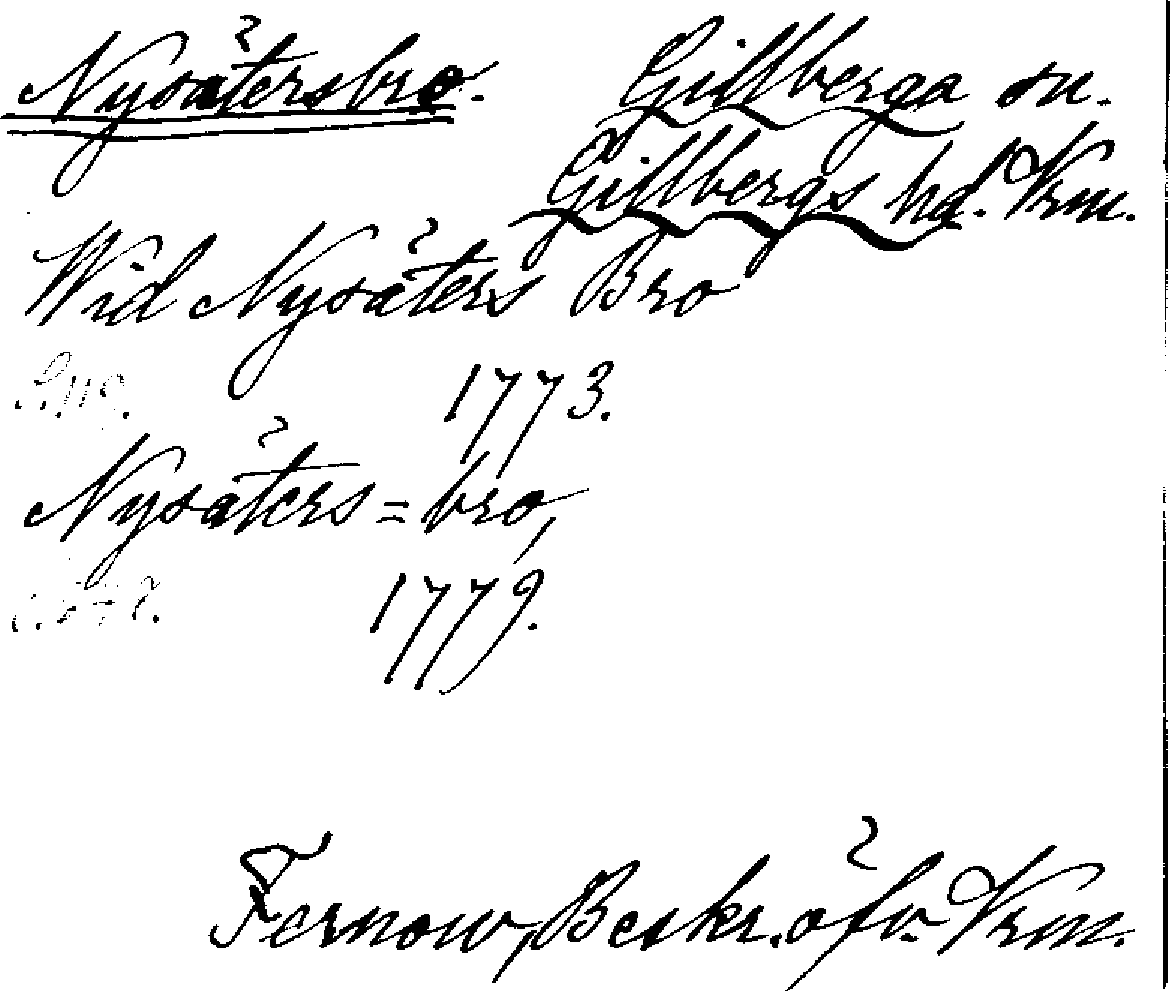 Nysätersbro.
Gillberga sn.
Gillbergs hd. Vrm.
Wid Nysäters Bro
1773.
Nysäters=bro,
1779.
Fernow, Beskr. öfv. Vrm.